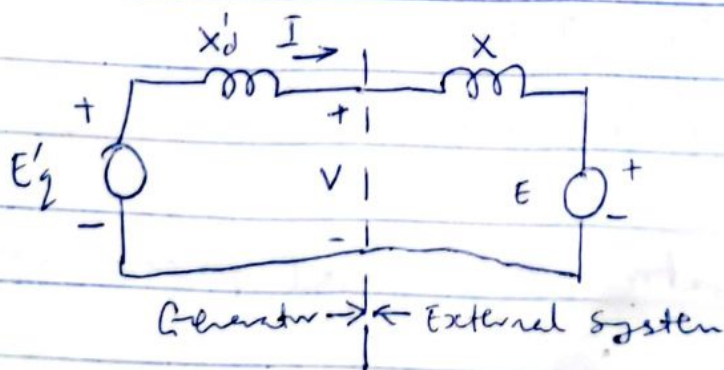 X'd I → X
+ +
E'q V E +
- - -
Generator → ← External system